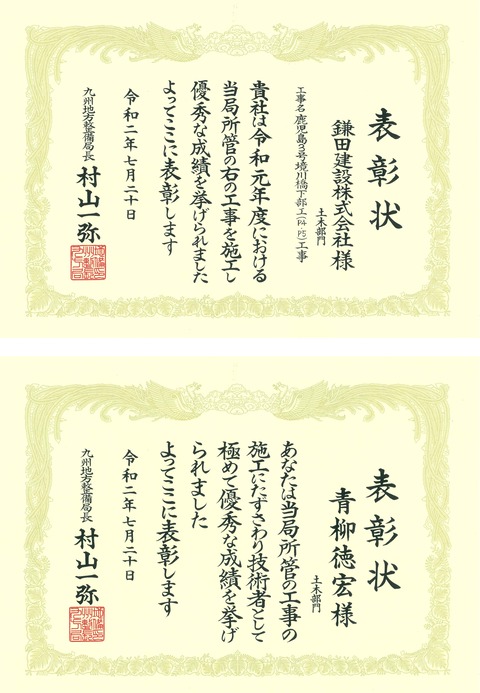 表彰状
鎌田建設株式会社様
土木部門
工事名 鹿児島3号境川橋下部工(P4 P5)工事
貴社は令和元年度における
当局所管の右の工事を施工し
優秀な成績を挙げられました
よってここに表彰します
令和二年七月二十日
九州地方整備局長 村山一弥
表彰状
青柳徳宏様
土木部門
あなたは当局所管の工事の
施工にたずさわり技術者として
極めて優秀な成績を挙げ
られました
よってここに表彰します
令和二年七月二十日
九州地方整備局長 村山一弥